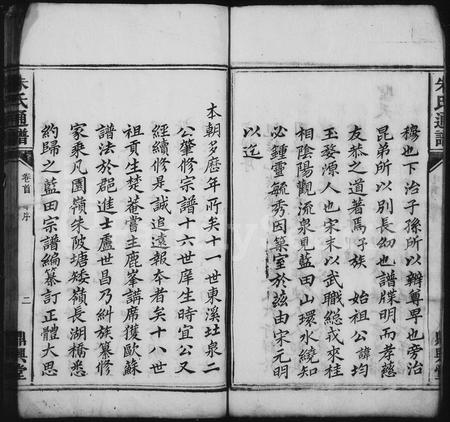 朱氏通譜
穆也下治子孫所以辨尊卑也旁治
昆弟所以別長幼也譜牒明而孝慈
友恭之道著焉子族　始祖公諱均
玉婺源人也宋末以武職總戎來桂
相陰陽觀流泉見藍田山環水繞知
必鍾靈毓秀因築室於茲由宋元明
以迄
鼎興堂
本朝多歷年所矣十一世東溪玨泉二
公肇修宗譜十六世庠生時宜公又
經續修是誠追遠報本者矣十八世
祖貢生楚菴嘗主鹿峯講席獲歐蘇
譜法於郡進士盧世昌乃糾族纂修
家乘凡園嶺朱陂塘矮嶺長湖橋悉
約歸之藍田宗譜編纂訂正體大思
朱氏通譜
卷首　序
二
鼎興堂